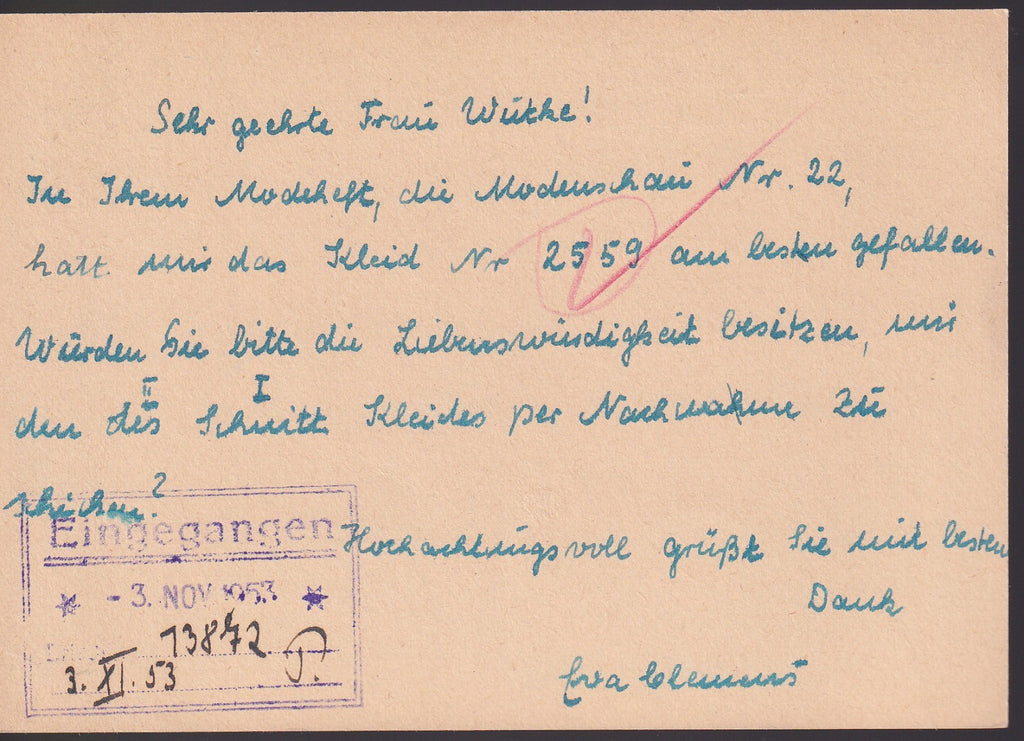 Sehr geehrte Frau Wutke!
In Ihrem Modeheft, die Modenschau Nr. 22,
hatt mir das Kleid Nr 2559 am besten gefallen.
Würden Sie bitte die Liebenswürdigkeit besitzen, mir
II I
den des Schnitt Kleides per Nachnahme zu
schicken?
Hochachtungsvoll grüßt Sie mit besten
Dank
Eva Clemens
Eingegangen
- 3. NOV 1953
13872
3. XI. 53